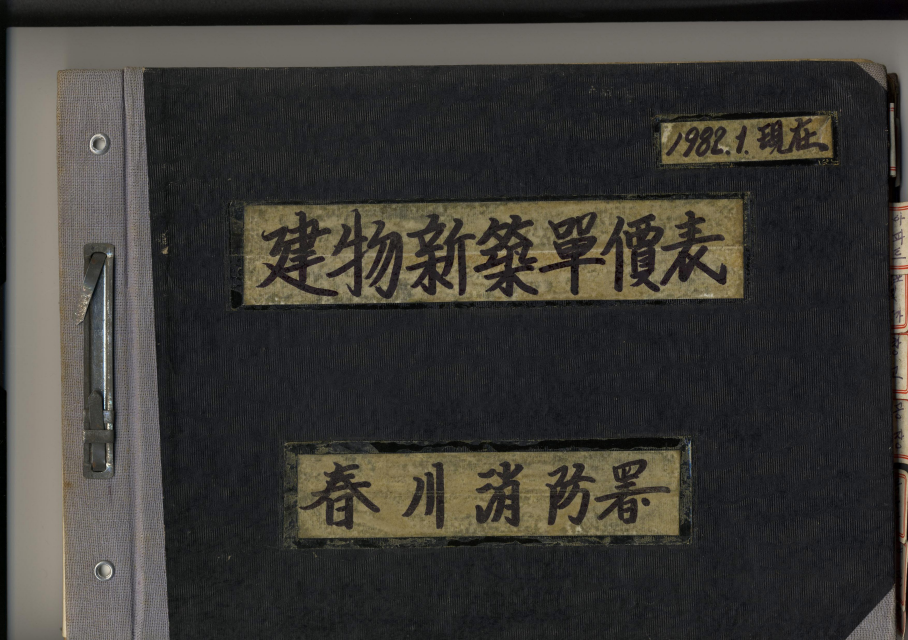 1982.1.現在
建物新築單價表
春川消防署
아파트